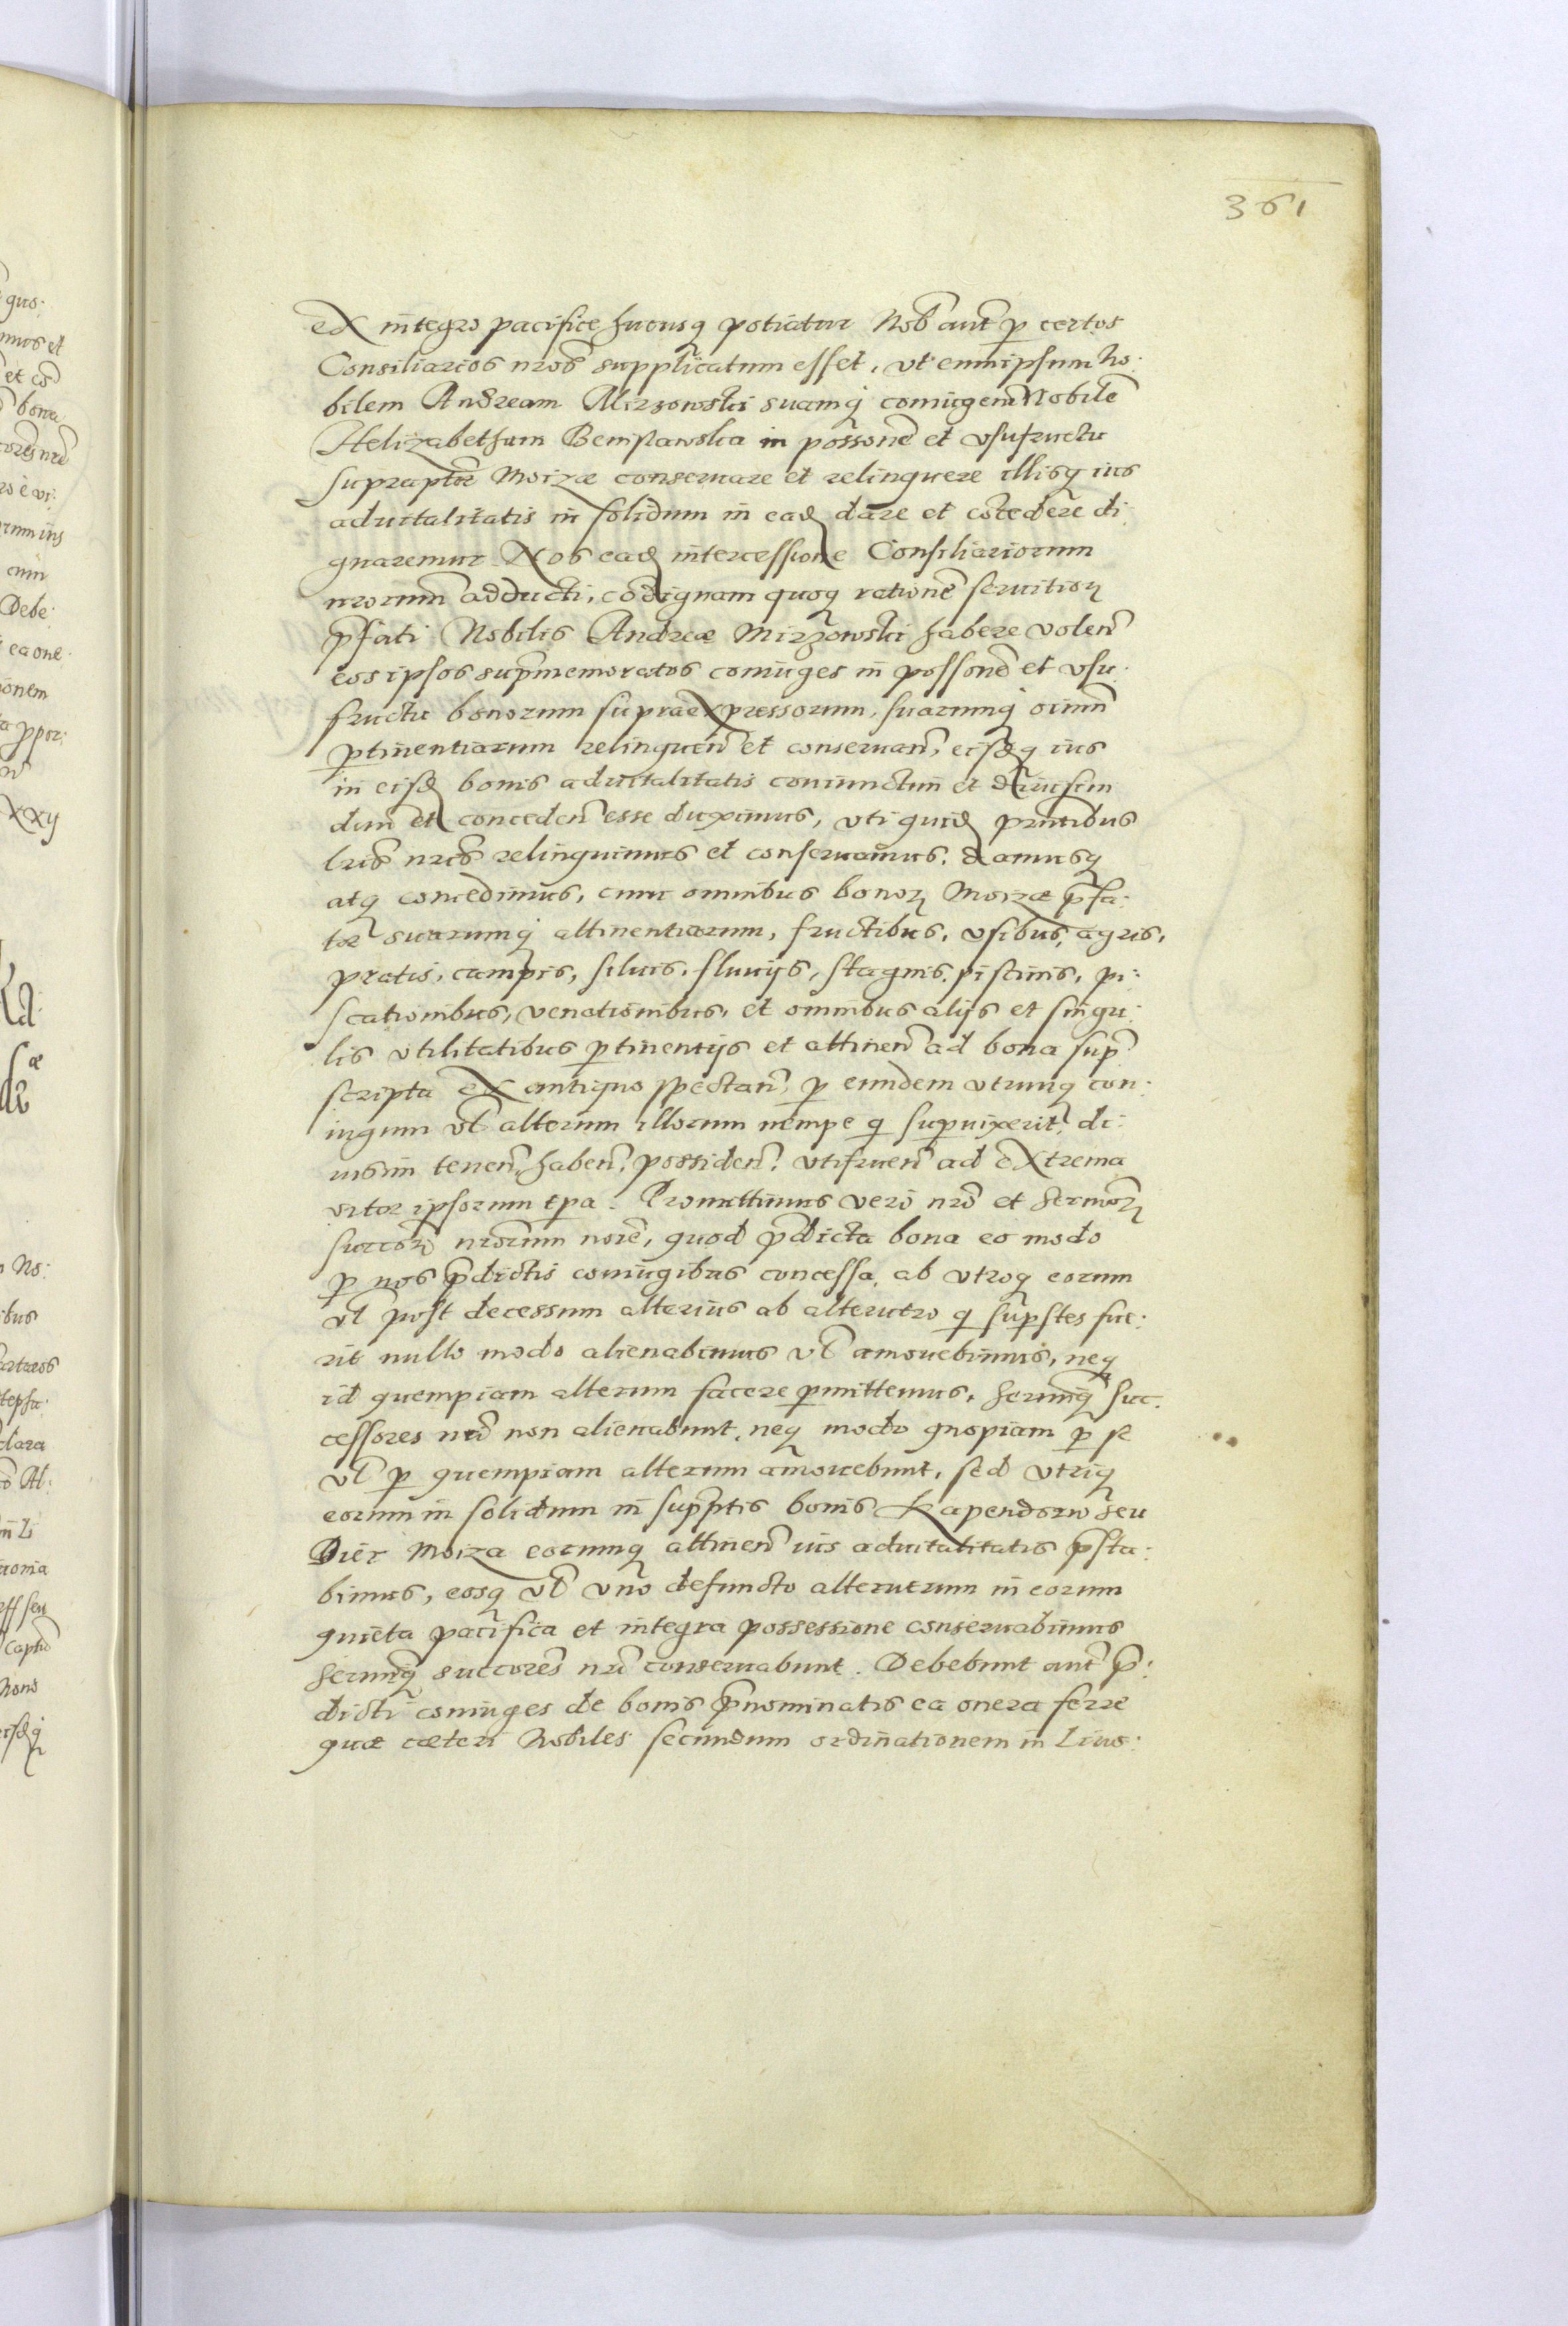 361
ex integro pacifice hucusq potiatur Nob aut p certos
Consiliarios nros supplicatum esset, vt eum ipsum No:
bilem Andream Mirzowski suamq coniugem Nobile
Helizabetham Benislawska in possone et vsufructu
supraptae Moizae conseruare et relinquere illisq ius
aduitalitatis in solidum in ead dare et cocedere di
gnaremur Nos ead intercessione Consiliariorum
nrorum adducti, codignam quoq ratione seruitior
pfati Nobilis Andreae Mirzowski habere volen
eos ipsos supmemoratos coniuges in possone et vsu:
fructu bonorum supraexpressorum, suarumq oium
ptinentiarum relinquen et conseruan, eisdq ius
in eisd bonis aduitalitatis coniunctim et diuisim
dum et conceden esse duximus, vti quid pntibus
lris nris relinquimus et conseruamus, damusq
atq concedimus, cum omnibus bonor Moizae pfa:
tae suarumq attinentiarum, fructibus, vsibus, agris,
pratis, campis, siluis, fluuijs, stagnis, piscinis, pi:
scationibus, venationibus, et omnibus alijs et singu:
lis vtilitatibus ptinentijs et attinen ad bona sup
scripta ex antiquo spectan, p eumdem vtrumq con:
iugum vl alterum illorum nempe q supuixerit, di:
uisim tenen, haben, possiden, vtifruen ad extrema
vitae ipsorum tpa. Promittimus vero nro et sermor
succor nrorum noie, quod pdicta bona eo modo
p nos pdictis coniugibus concessa, ab vtroq eorum
vl post decessum alterius ab alterutro q supstes fue:
rit nullo modo alienabimus vl amouebimus, neq
id quempiam alterum facere pmittemus, sermiq suc:
cessores nri non alienabunt, neq modo quopiam p se
vl p quempiam alterum amouebunt, sed vtriq
eorum in solidum in supptis bonis Kapendorw seu
Dier Moiza eorumq attinen ius aduitalitatis psta:
bimus, eosq vl vno defuncto alterutrum in eorum
quieta pacifica et integra possessione conseruabimus
sermiq succores nri conseruabunt. Debebunt aut p:
dicti coniuges de bonis pnominatis ea onera ferre
quae caeteri Nobiles secundum ordinationem in Liuo: